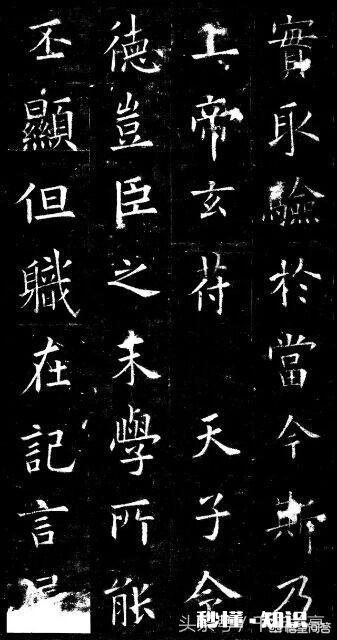 實取驗於當今斯乃
上帝玄苻 天子令
德豈臣之末學所能
丕顯但職在記言屬
秒懂·知识
头条
悟空问答